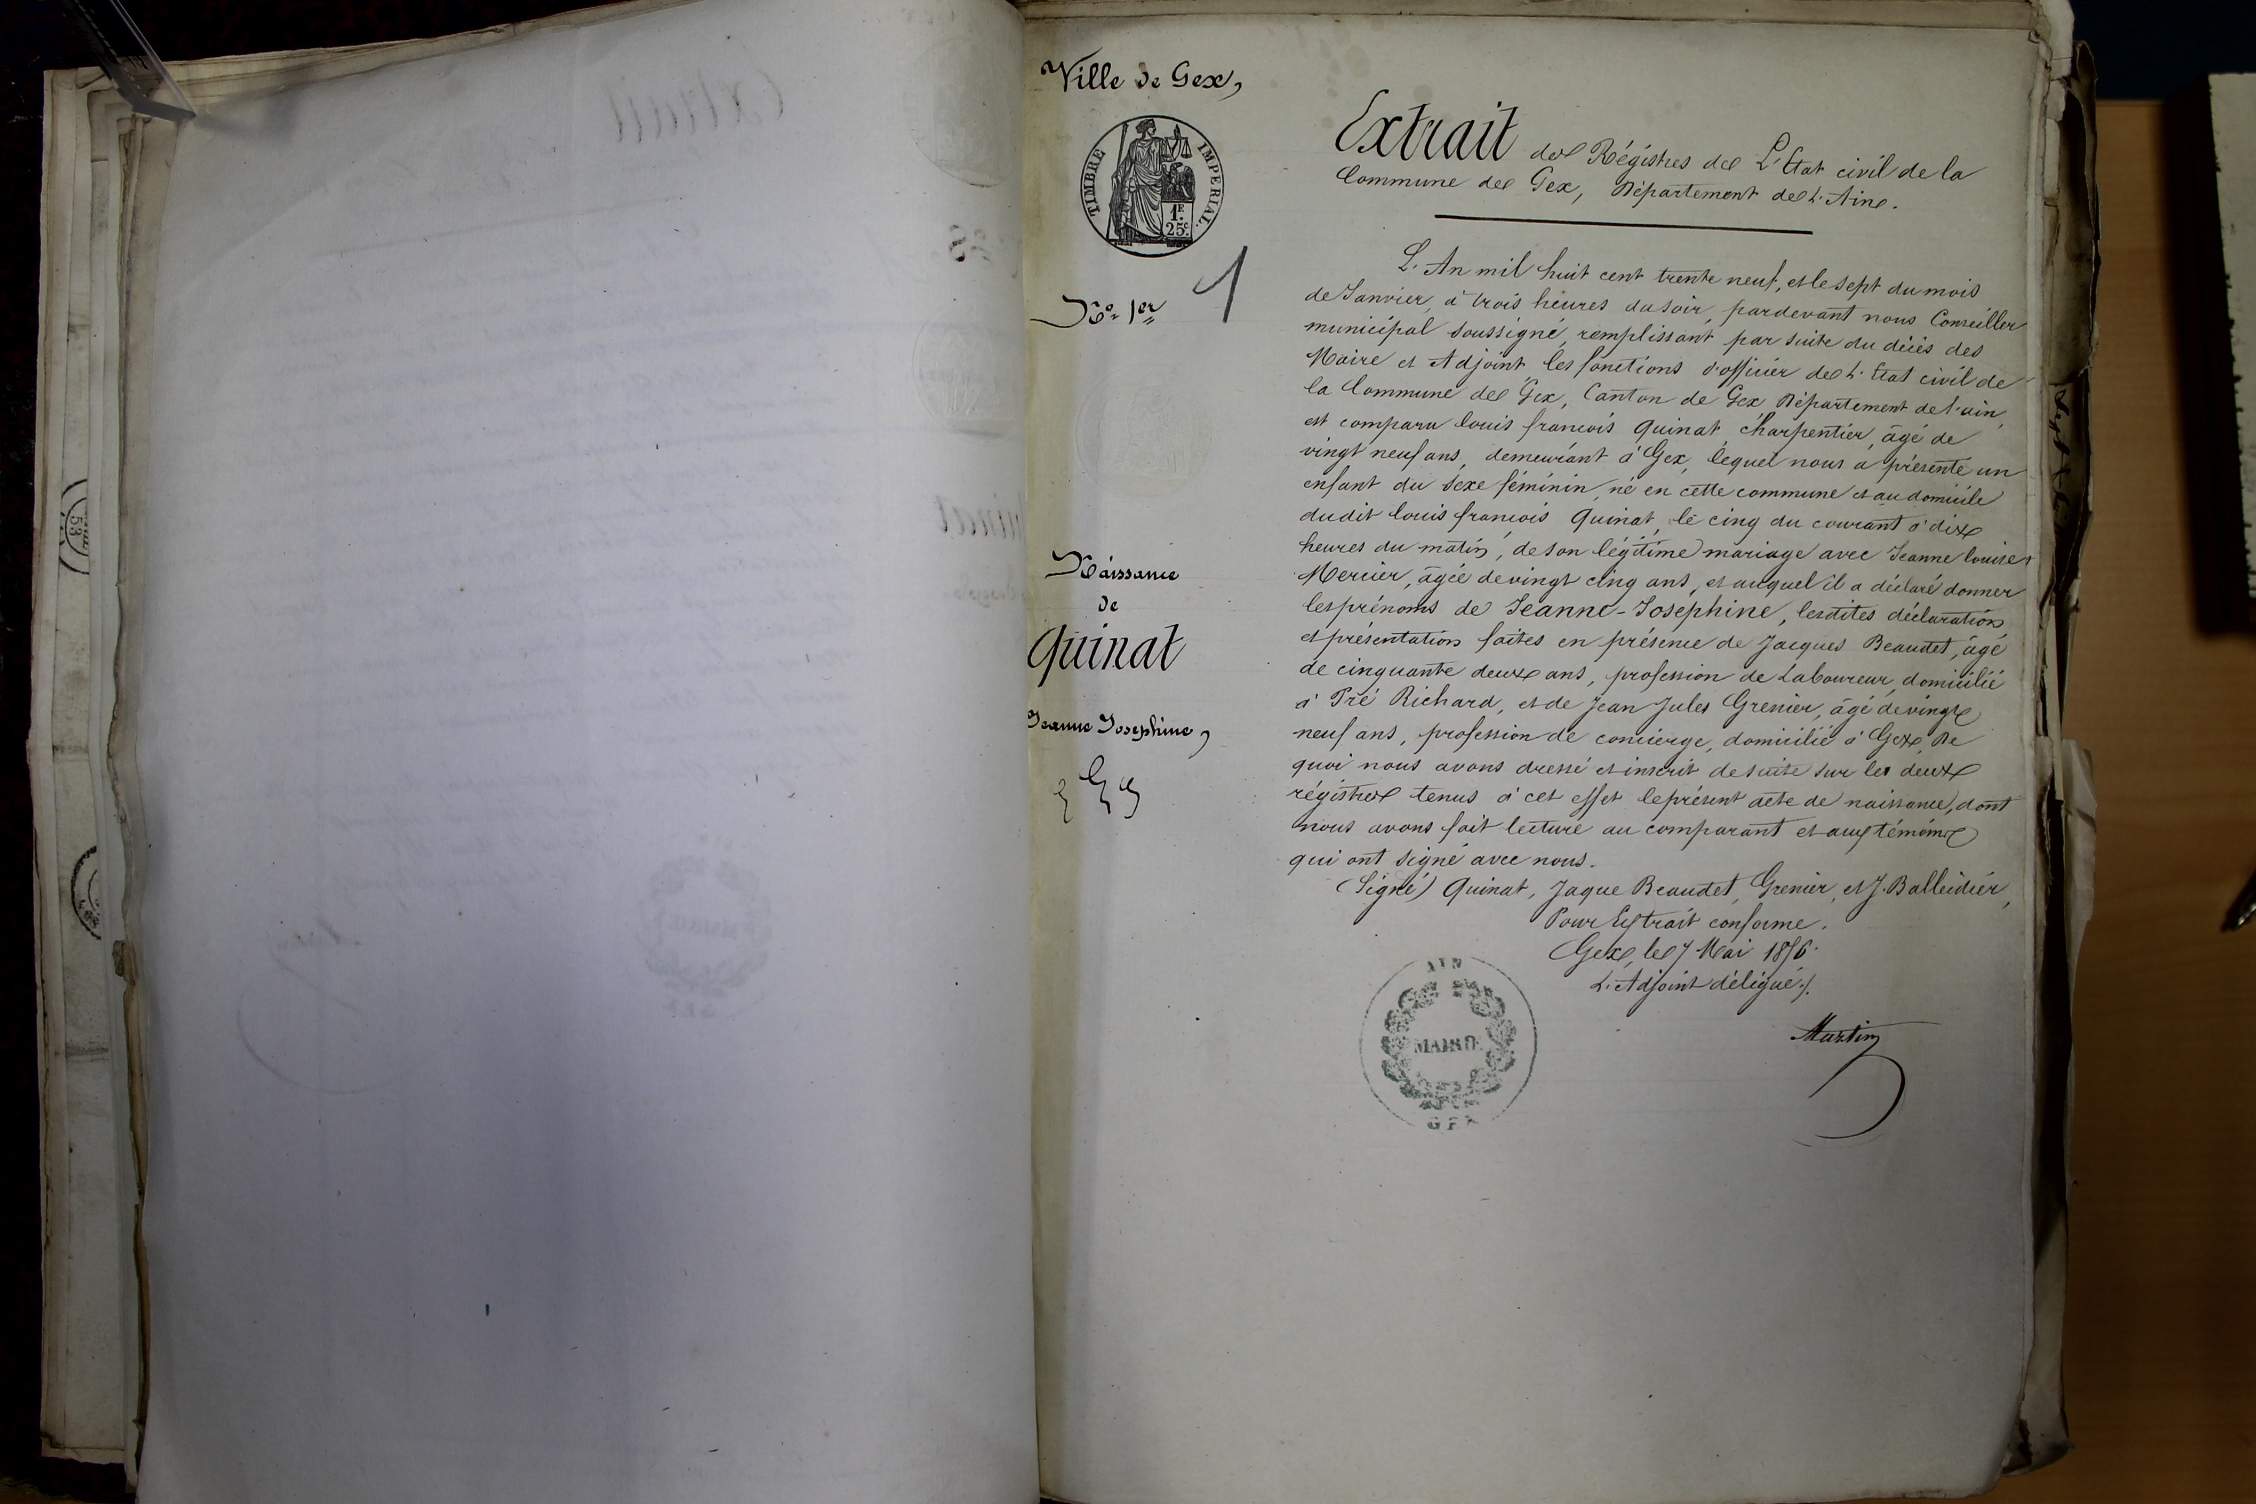 Ville de Gex,
TIMBRE IMPERIAL
1F.
25c.
No. 1er
1
Naissance
de
Quinat
Jeanne Josephine,
Extrait des Régistres de L'Etat civil de la
Commune de Gex, Département de L'Ain.
L'An mil huit cent trente neuf, et le sept du mois
de Janvier, à trois heures du soir, pardevant nous Conseiller
municipal soussigné, remplissant par suite du décès des
Maire et Adjoint, les fonctions d'officier de L'Etat civil de
la Commune de Gex, Canton de Gex Département de l'ain,
est comparu Louis françois Quinat, charpentier, âgé de
vingt neuf ans, demeurant à Gex, lequel nous a présenté un
enfant du sexe féminin, né en cette commune et au domicile
dudit Louis françois Quinat, le cinq du courant à dix
heures du matin, de son légitime mariage avec Jeanne Louise
Mercier, âgée de vingt cinq ans, et auquel il a déclaré donner
les prénoms de Jeanne-Josephine, lesdites déclaration
et présentation faites en présence de Jacques Beaudet, âgé
de cinquante deux ans, profession de Laboureur, domicilié
à Pré Richard, et de Jean Jules Grenier, âgé de vingt
neuf ans, profession de concierge, domicilié à Gex, De
quoi nous avons dressé et inscrit de suite sur les deux
régistres tenus à cet effet le présent acte de naissance, dont
nous avons fait lecture au comparant et aux témoins
qui ont signé avec nous.
(Signé) Quinat, Jaque Beaudet, Grenier, et J. Balleidier,
Pour Extrait conforme.
Gex, le 7 Mai 1856.
L'Adjoint délégué,
Martin
AIN
MAIRIE
GEX